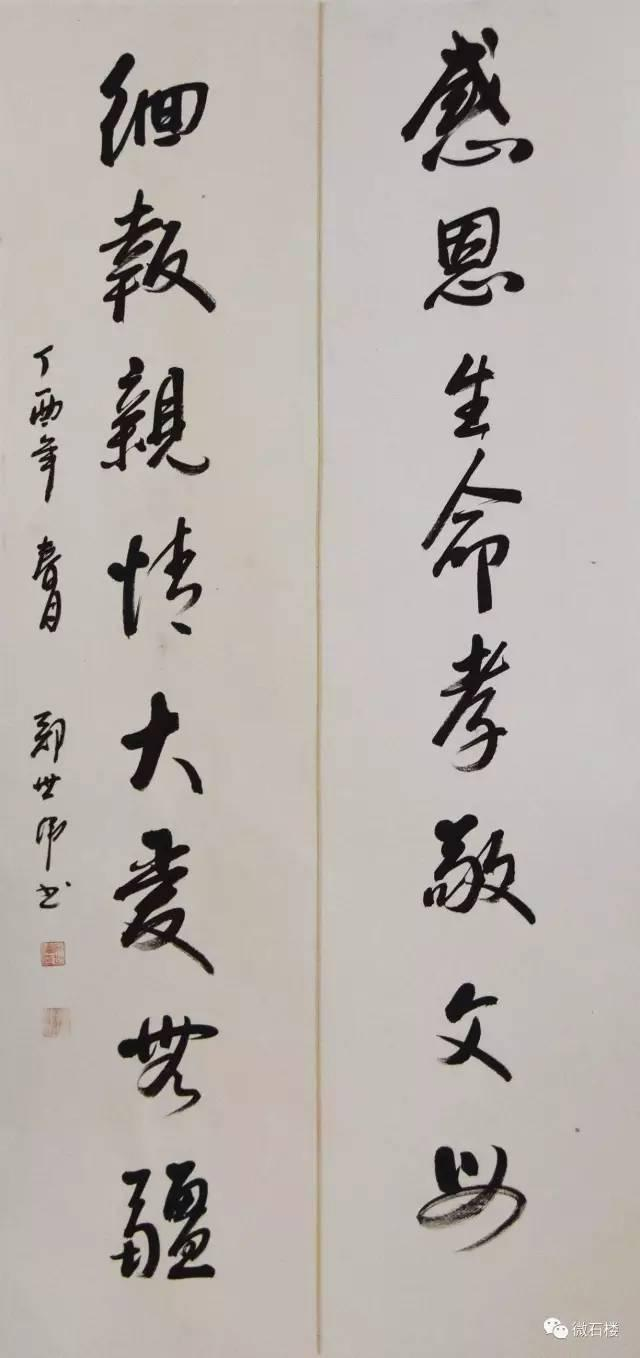 感恩生命孝敬父母
緬報親情大愛無疆
丁酉年春月 鄭世書
微石楼